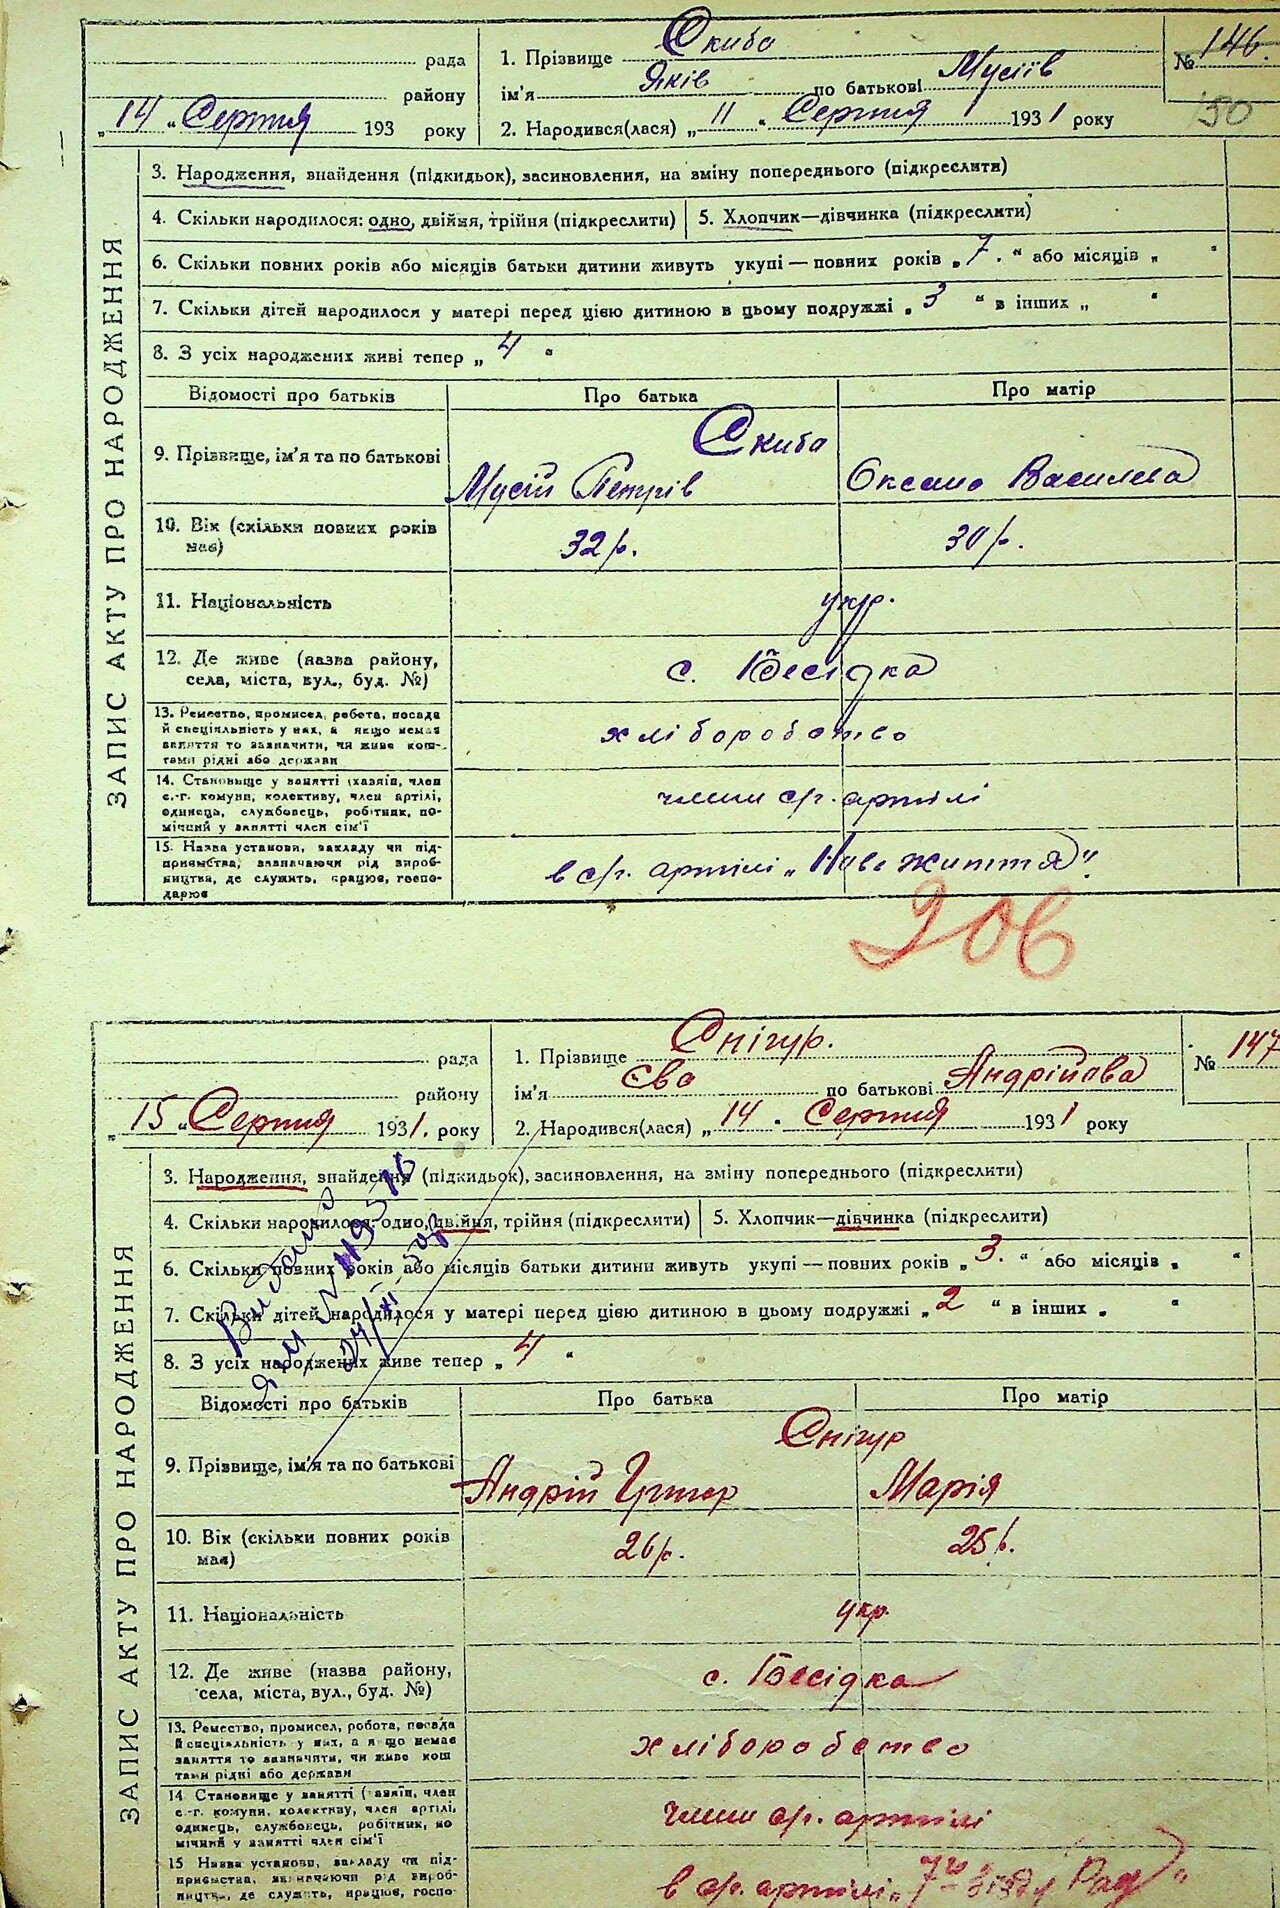 рада
району
„14 “ Серпня 193 року
1. Прізвище Скиба
ім'я Яків по батькові Мусіїв
2. Народився(лася) „ 11 “ Серпня 1931 року
№ 146.
150
ЗАПИС АКТУ ПРО НАРОДЖЕННЯ
3. Народження, знайдення (підкидьок), засиновлення, на зміну попереднього (підкреслити)
4. Скільки народилося: одно, двійня, трійня (підкреслити) 5. Хлопчик—дівчинка (підкреслити)
6. Скільки повних років або місяців батьки дитини живуть укупі — повних років „ 7. “ або місяців „ “
7. Скільки дітей народилося у матері перед цією дитиною в цьому подружжі „ 3 “ в інших „ “
8. З усіх народжених живі тепер „ 4 “
Відомості про батьків Про батька Про матір
9. Прізвище, ім'я та по батькові
Скиба
Мусій Петрів Оксана Василева
10. Вік (скільки повних років має) 32 р. 30 р.
11. Національність укр.
12. Де живе (назва району, села, міста, вул., буд. №) с. Бесідка
13. Ремество, промисел, робота, посада
й спеціяльність у них, а якщо немає
заняття то зазначити, чи живе кош-
тами рідні або держави
хліборобство
14. Становище у занятті (хазяїн, член
с.-г. комуни, колективу, член артілі,
одинець, службовець, робітник, по-
мічний у занятті член сім'ї
член с/г. артілі
15. Назва установи, закладу чи під-
приємства, зазначаючи рід вироб-
ництва, де служить, працює, госпо-
дарює
в с/г. артілі „Нове життя“.
206
рада
району
„ 15 “ Серпня 1931. року
1. Прізвище Снігур.
ім'я Єва по батькові Андрійова
2. Народився(лася) „ 14 “ Серпня 1931 року
№ 147
ЗАПИС АКТУ ПРО НАРОДЖЕННЯ
3. Народження, знайдення (підкидьок), засиновлення, на зміну попереднього (підкреслити)
4. Скільки народилося: одно, двійня, трійня (підкреслити) 5. Хлопчик—дівчинка (підкреслити)
6. Скільки повних років або місяців батьки дитини живуть укупі — повних років „ 3. “ або місяців „ “
7. Скільки дітей народилося у матері перед цією дитиною в цьому подружжі „ 2 “ в інших „ “
8. З усіх народжених живе тепер „ 4 “
Відомості про батьків Про батька Про матір
9. Прізвище, ім'я та по батькові
Снігур
Андрій Григор Марія
10. Вік (скільки повних років має) 26 р. 25 р.
11. Національність укр.
12. Де живе (назва району, села, міста, вул., буд. №) с. Бесідка
13. Ремество, промисел, робота, посада
й спеціяльність у них, а якщо немає
заняття то зазначити, чи живе кош
тами рідні або держави
хліборобство
14. Становище у занятті (хазяїн, член
с.-г. комуни, колективу, член артілі,
одинець, службовець, робітник, по
мічний у занятті член сім'ї
член с/г. артілі
15 Назва установи, закладу чи під-
приємства, зазначаючи рід вироб-
ництва, де служить, працює, госпо-
в с/г. артілі „7й З'їзду Рад“